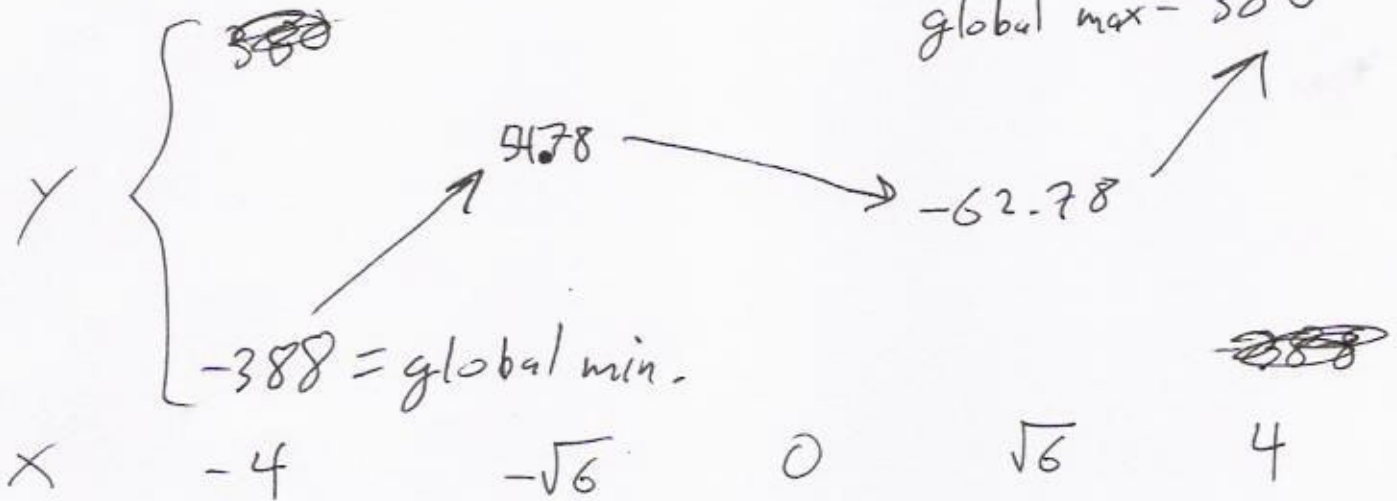 global max -
Y
54.78
-62.78
-388 = global min.
X -4 -√6 0 √6 4